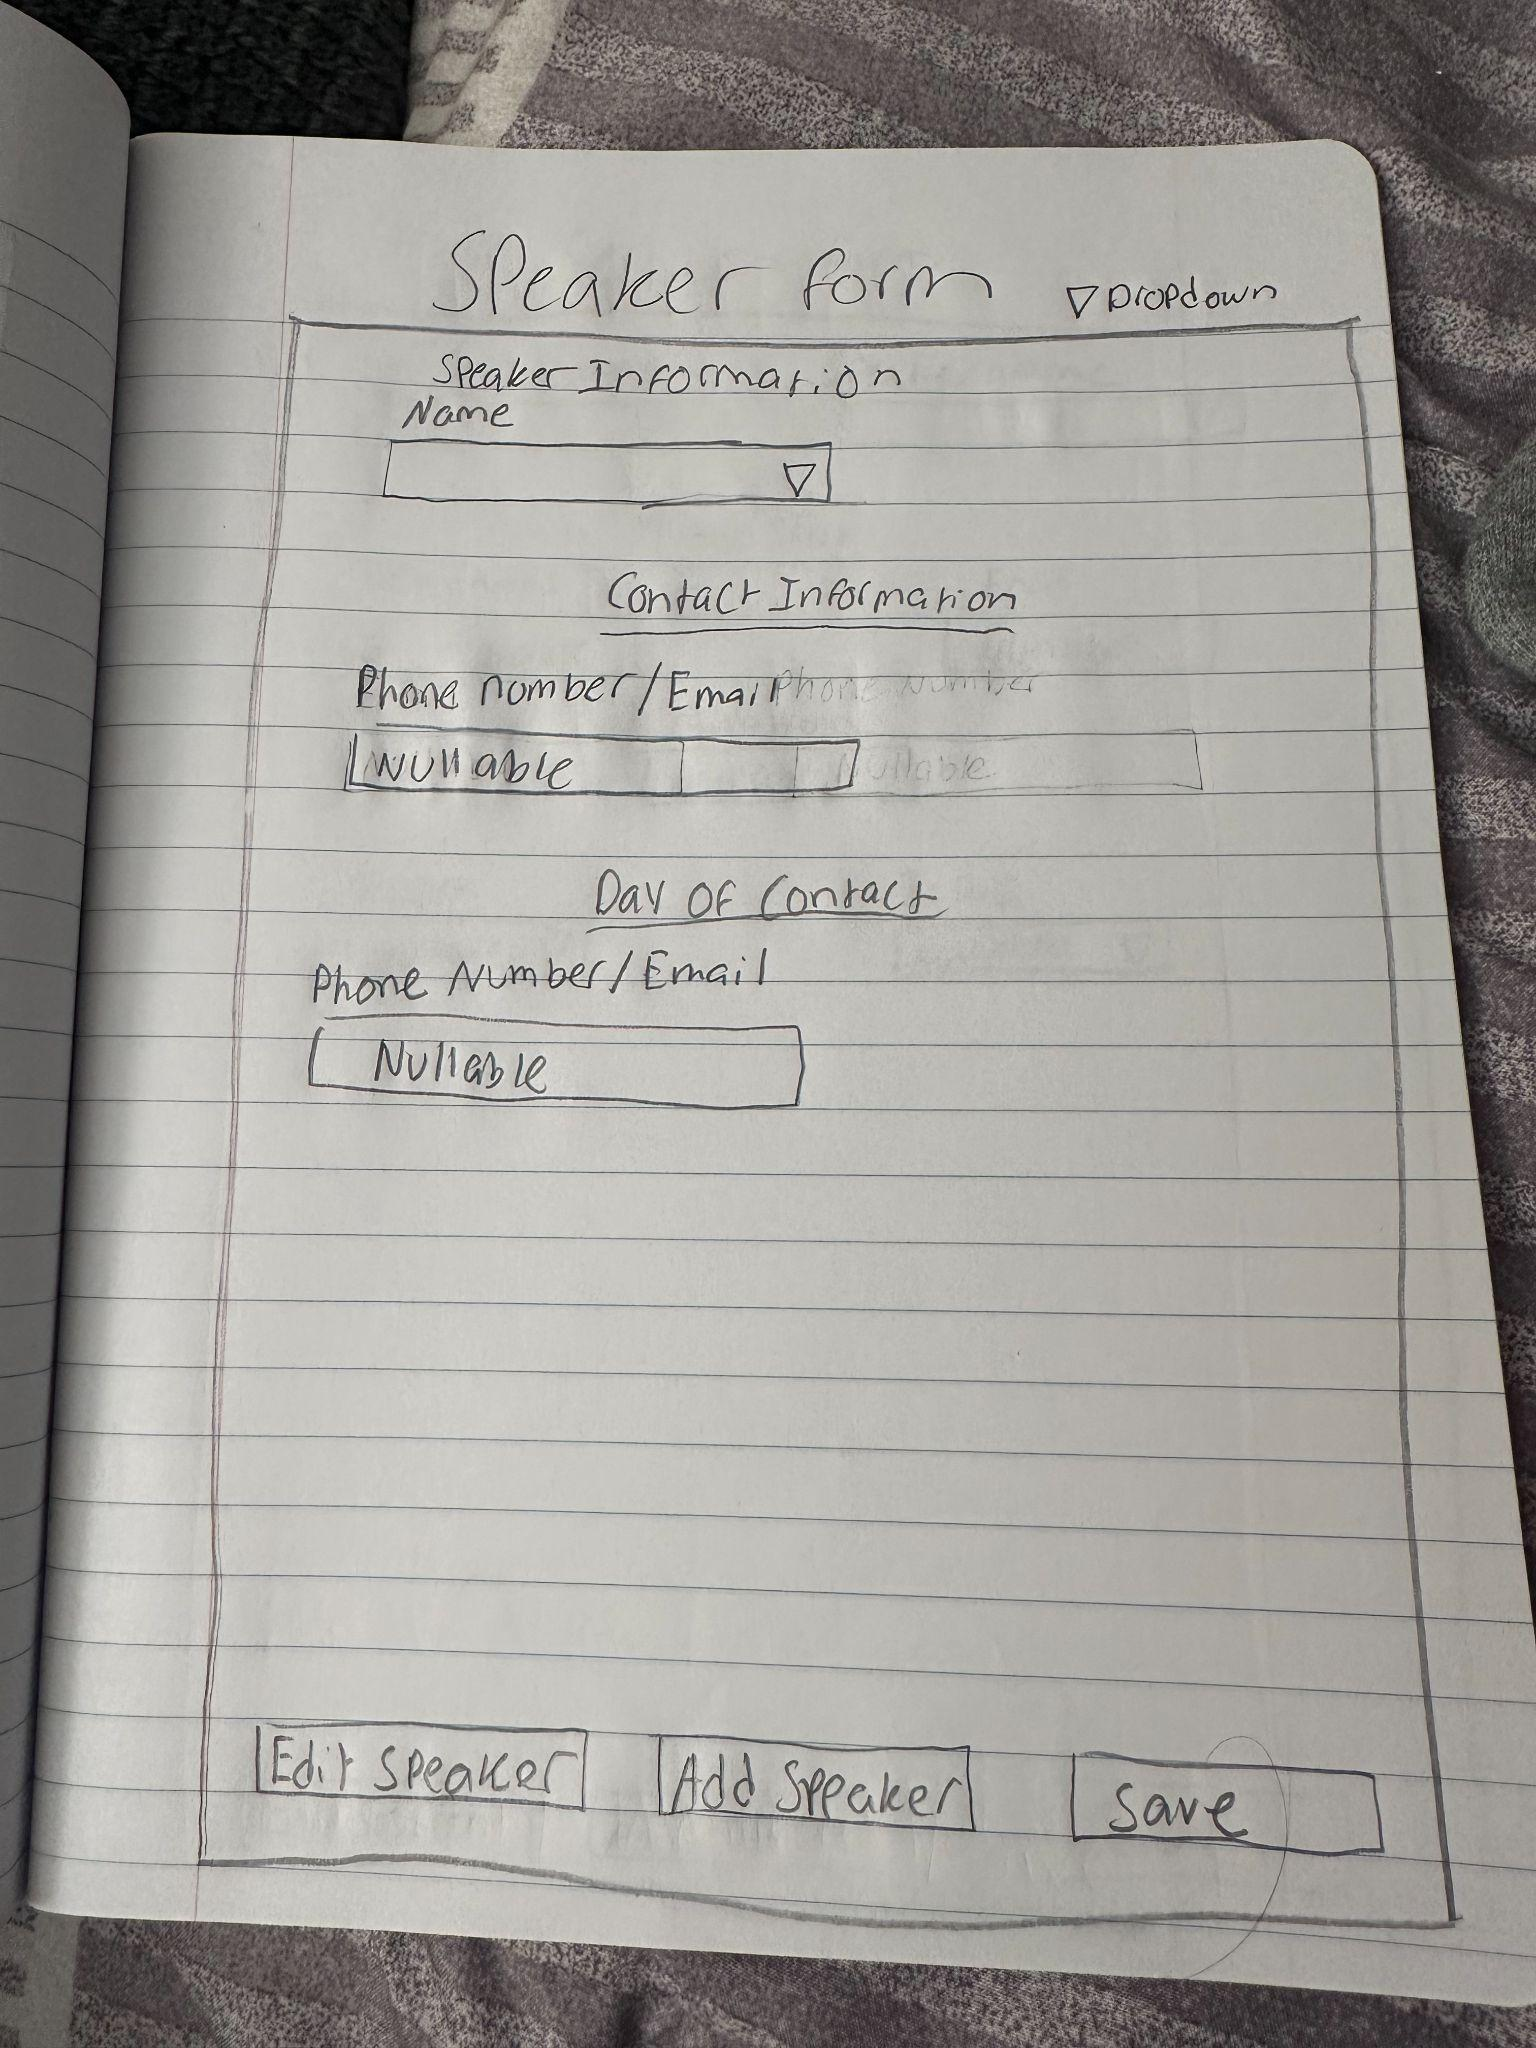 Speaker form
▽ Dropdown
Speaker Information
Name
▽
Contact Information
Phone number/Email Phone Number
Nullable Nullable
Day of Contact
Phone Number/Email
Nullable
Edit Speaker Add Speaker Save